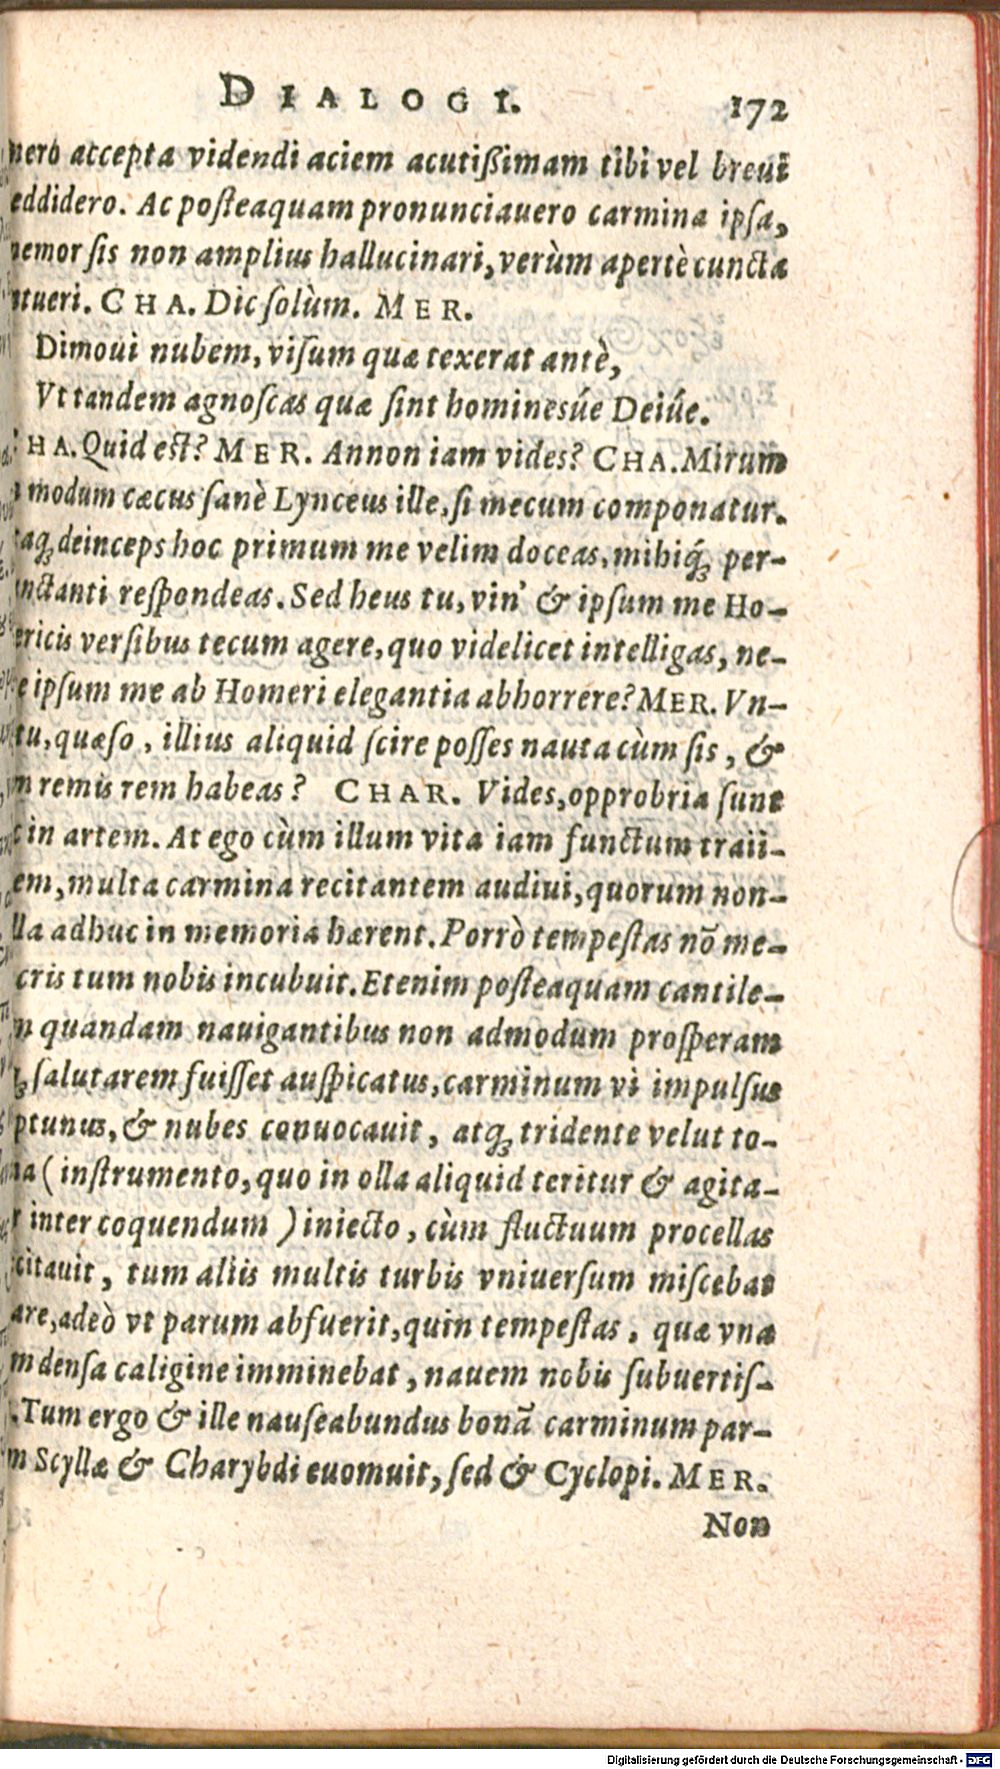 DIALOGI. 172
nero accepta videndi aciem acutißimam tibi vel breui
eddidero. Ac posteaquam pronunciauero carmina ipsa,
nemor sis non amplius hallucinari, verùm apertè cuncta
ntueri. CHA. Dic solùm. MER.
Dimoui nubem, visum quæ texerat antè,
Vt tandem agnoscas quæ sint hominesúe Deiúe.
HA. Quid est? MER. Annon iam vides? CHA. Mirum
modum cæcus sanè Lynceus ille, si mecum componatur.
taq; deinceps hoc primum me velim doceas, mihiq́; per-
nctanti respondeas. Sed heus tu, vin' & ipsum me Ho-
ericis versibus tecum agere, quo videlicet intelligas, ne-
e ipsum me ab Homeri elegantia abhorrere? MER. Vn-
tu, quæso, illius aliquid scire posses nauta cùm sis, &
m remis rem habeas? CHAR. Vides, opprobria sunt
c in artem. At ego cùm illum vita iam functum traii-
em, multa carmina recitantem audiui, quorum non-
lla adhuc in memoria hærent. Porrò tempestas nõ me-
cris tum nobis incubuit. Etenim posteaquam cantile-
m quandam nauigantibus non admodum prosperam
q; salutarem fuisset auspicatus, carminum vi impulsus
ptunus, & nubes conuocauit, atq; tridente velut to-
na (instrumento, quo in olla aliquid teritur & agita-
r inter coquendum) iniecto, cùm fluctuum procellas
citauit, tum aliis multis turbis vniuersum miscebat
are, adeò vt parum abfuerit, quin tempestas, quæ vna
m densa caligine imminebat, nauem nobis subuertis-
. Tum ergo & ille nauseabundus bonã carminum par-
m Scyllæ & Charybdi euomuit, sed & Cyclopi. MER.
Non
Digitalisierung gefördert durch die Deutsche Forschungsgemeinschaft - DFG